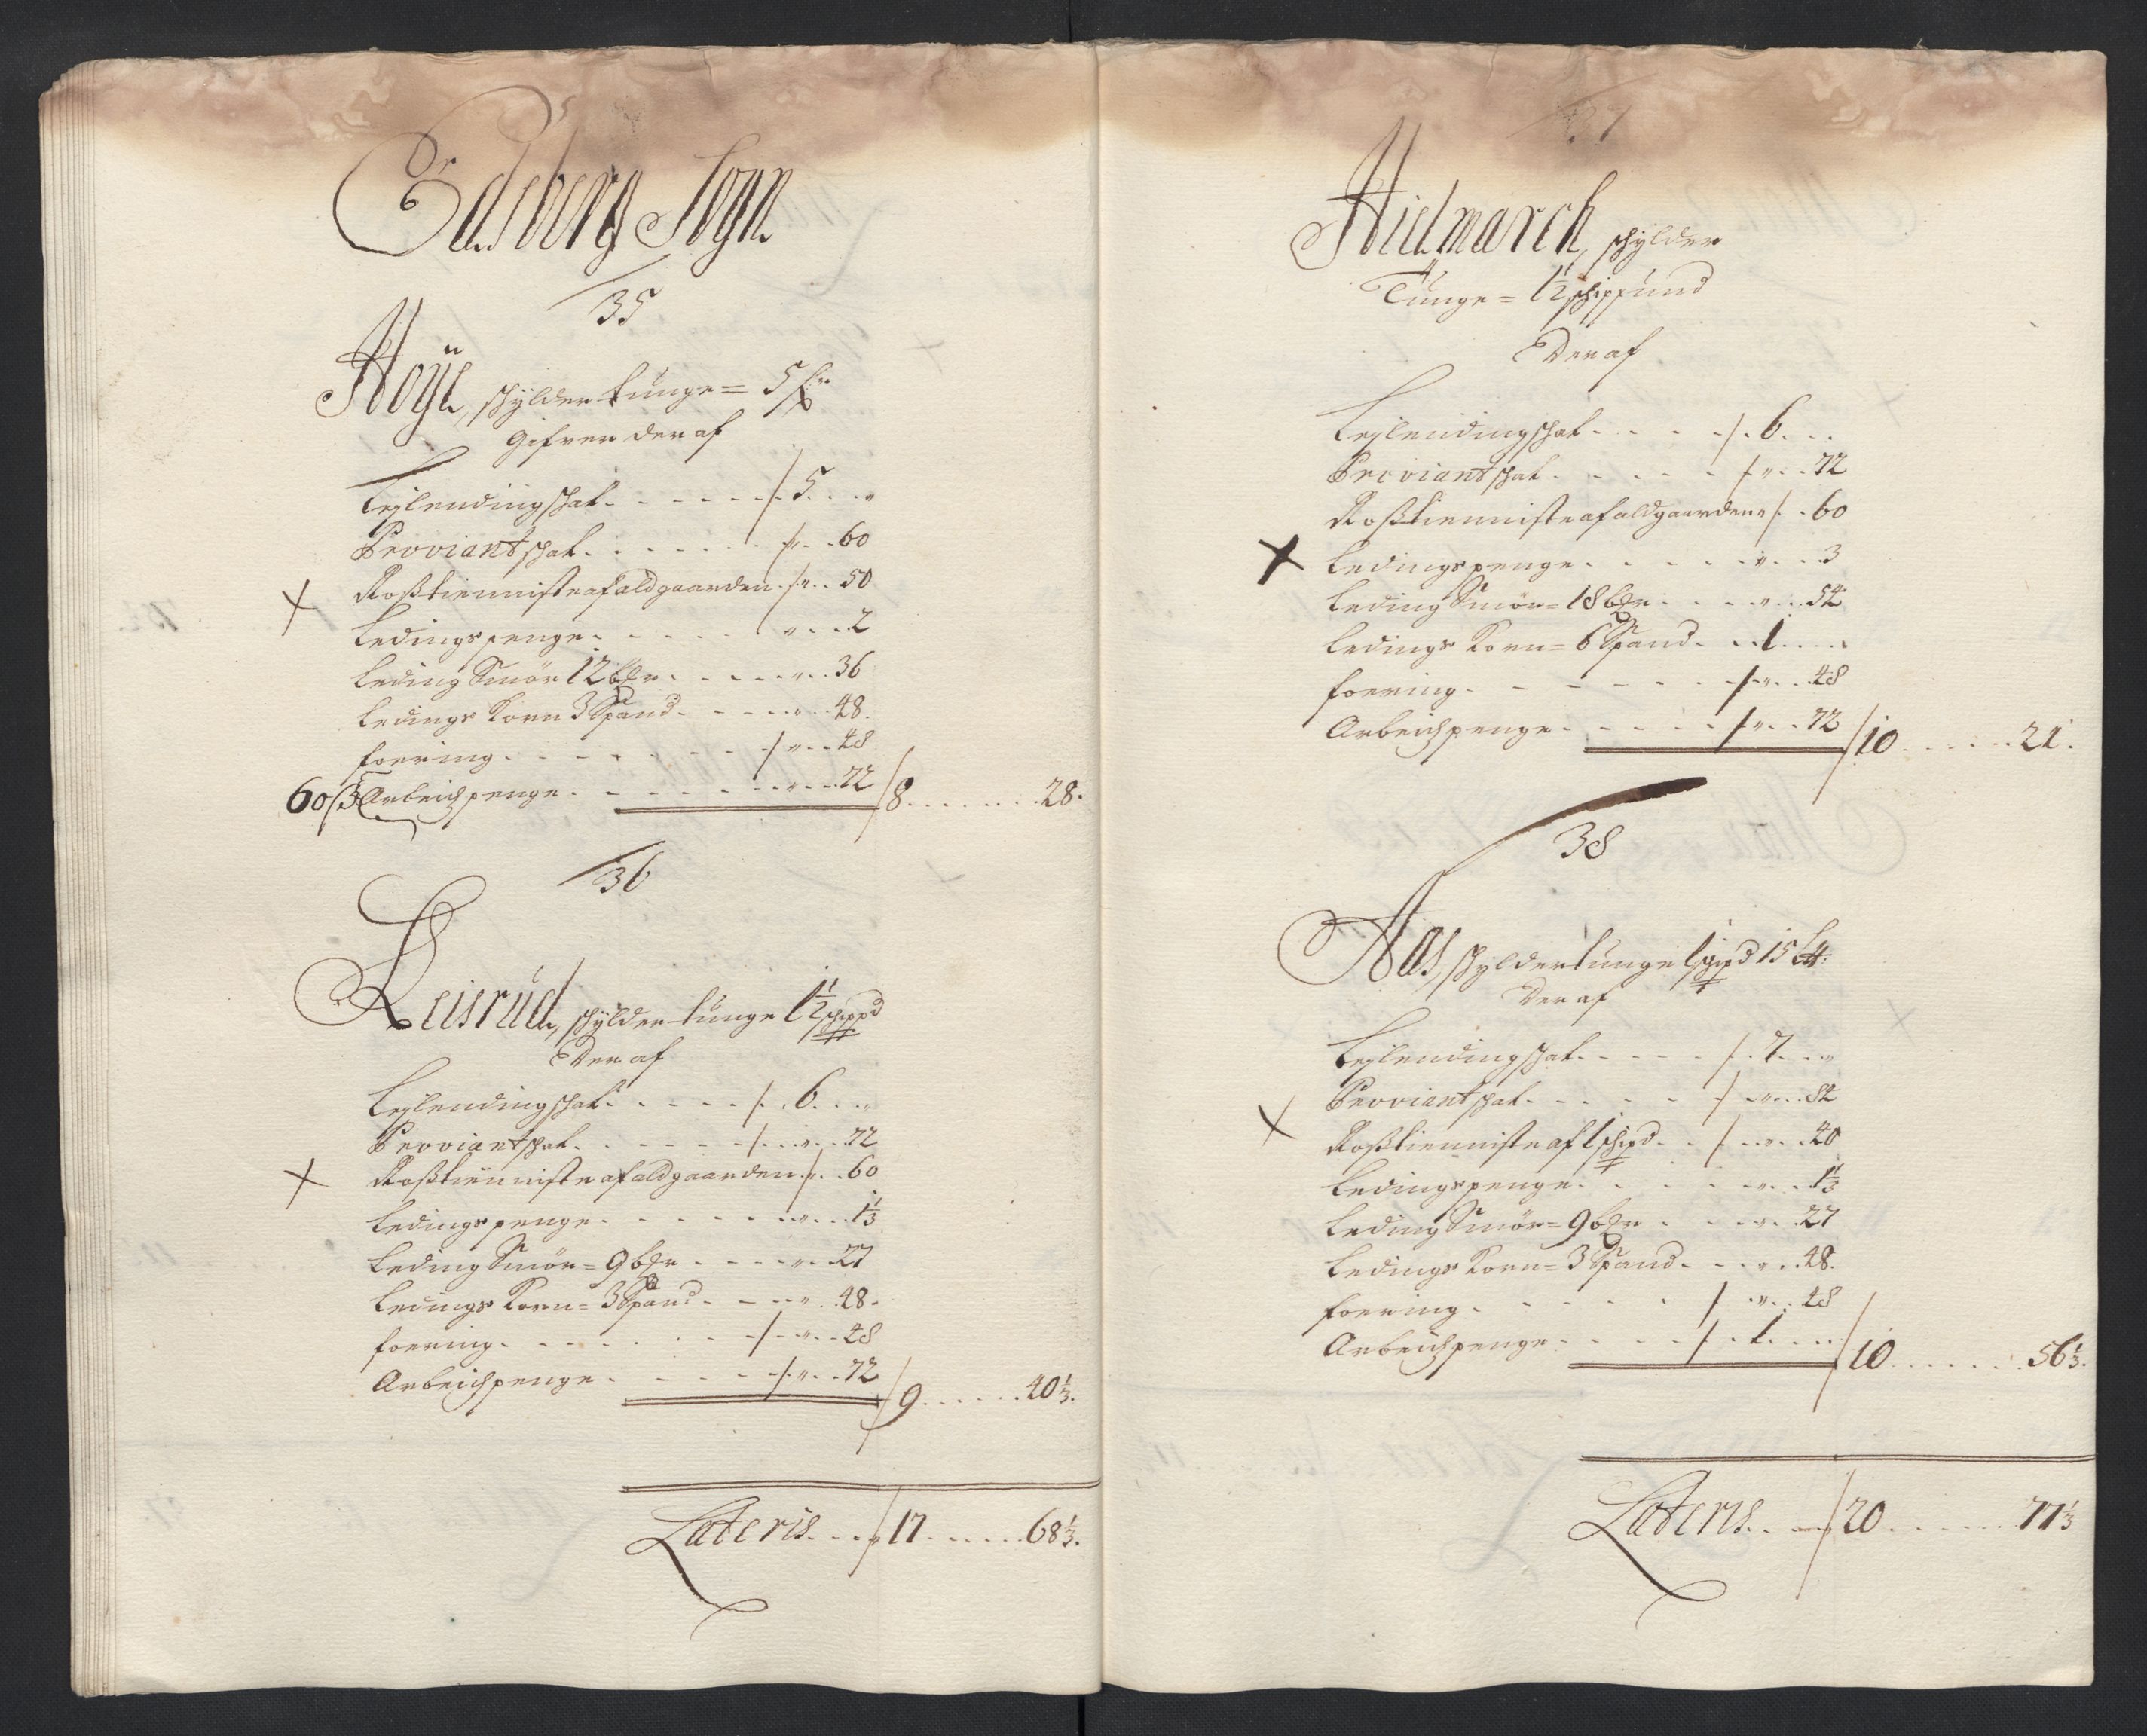 Edsberg Sogn
35
Höÿe, schÿlder tunge = 5 
Gifver der af
Leÿlendingschat . . . . . . 5 . . . "
Proviantschat . . . . . . . " . . 60
Roßtienniste af aldgaarden . " . . 50
Ledings penge . . . . . " . . . 2
Leding Smör 12 bßr . . . . " . . 36
Ledings Korn 3 Spand . . . . " . . 48.
foering . . . . . . . " . . 48
60 ß Arbeidspenge . . . . . . " . . 72 / 8 . . . . . . . 28.
36
Reisrud, schÿlder tunge 1½ schippd
Der af
Leÿlendingschat . . . . . . 6 . . . "
Proviantschat . . . . . . . " . . 72
Roßtienniste af aldgaarden . " . . 60
Ledings penge . . . . . . " . . . 1⅓
Leding Smör = 9 bßr . . . . " . . 27
Ledings Korn = 3 Spand . . . " . . 48.
foering . . . . . . . " . . 48
Arbeidspenge . . . . . . " . . 72 / 9 . . . . . . 40⅓.
Lateris . . . . 17 . . . . . 68⅓.
37
Hielmarck, schÿlder
Tunge = 1½ schippund
Der af
Leÿlendingschat . . . . . . 6 . . .
Proviantschat . . . . . . " . . 72
Roßtienniste af aldgaarden " . . 60
Ledings penge . . . . . " . . . 3
Leding Smör = 18 bßr . . . . " . . 54
Ledings Korn = 6 Spand . . . 1 . . . .
foering . . . . . . . " . . 48
Arbeidspenge . . . . . . " . . 72 / 10 . . . . . . 21.
38
Aas, schÿlder tunge 1 schipd 15 
Der af
Leÿlendingschat . . . . . . 7 . . . "
Proviantschat . . . . . . " . . 84
Roßtienniste af 1 schipd . . . " . . 40
Ledings penge . . . . . " . . . 1⅓
Leding Smör = 9 bßr . . . . " . . 27
Ledings Korn = 3 Spand . . . " . . 48.
foering . . . . . . . " . . 48
Arbeidspenge . . . . . . 1 . . . . / 10 . . . . . . 56⅓.
Lateris . . . . 20 . . . . . . 77⅓